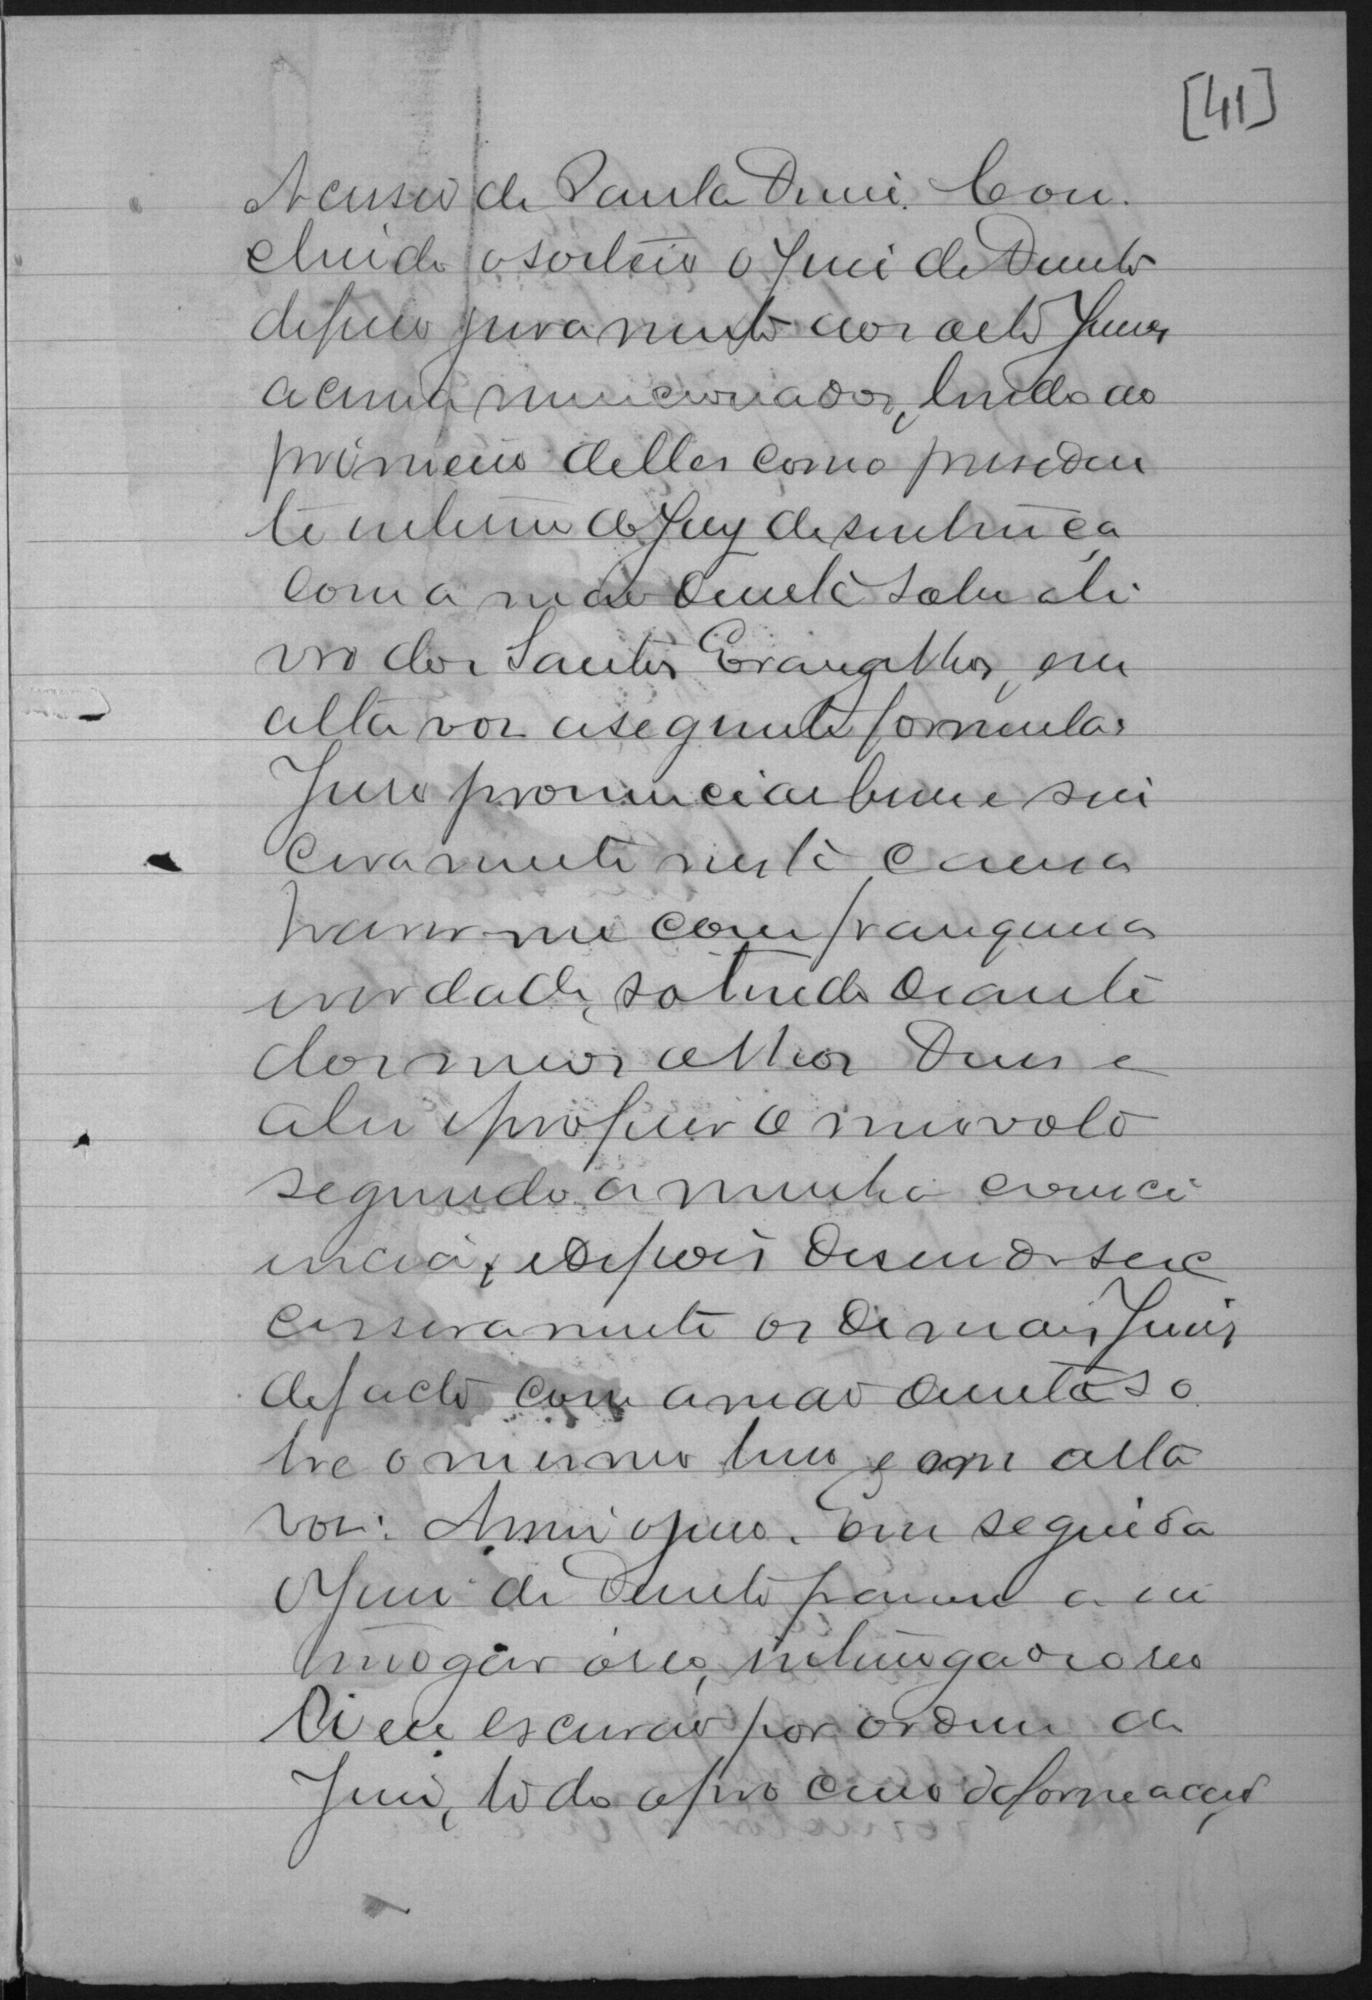 [41]
de Paula Diniz. Con
cluido o sorteio o Juiz de Direito
deferio juramento aos oito Juizes
acima mencionados, lendo ao
primeiro delles como presiden
te interino do Jury de sentença
com a mão direita sobre o li
vro dos Santos Evangelhos, em
alta voz a seguinte formula:
Juro pronunciar bem e sin
ceramente nesta causa
haver-me com franquesa
e verdade, só tendo deante
dos meus olhos Deus e
a lei e proferir o meu voto
segundo a minha consci
encia, e depois disendo
os demais Juizes
de facto com a mão direita so
bre o mesmo livro e em alta
voz: Assim o juro. Em seguida
o Juiz de Direito passou a in
terrogar o reo, interrogado o reo
li eu escrivão por ordem do
Juiz, todo o processo de formação